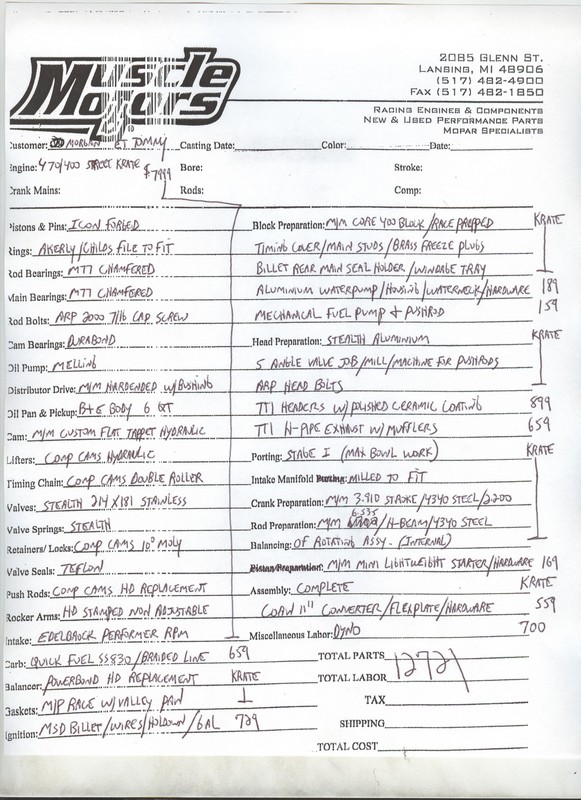 Muscle
Motors
2085 Glenn St.
Lansing, MI 48906
(517) 482-4900
Fax (517) 482-1850
Racing Engines & Components
New & Used Performance Parts
Mopar Specialists
Customer: MORGAN TOMMY Casting Date: Color: Date:
Engine: 470/400 STREET KRATE $7999 Bore: Stroke:
Crank Mains: Rods: Comp:
Pistons & Pins: ICON FORGED
Block Preparation: M/M CORE 400 BLOCK/RACE PREPPED KRATE
Rings: AKERLY/CHILDS FILE TO FIT
TIMING COVER/MAIN STUDS/BRASS FREEZE PLUGS
Rod Bearings: M77 CHAMFERED
BILLET REAR MAIN SEAL HOLDER/WINDAGE TRAY
Main Bearings: M77 CHAMFERED
ALUMINIUM WATERPUMP/HOUSING/WATERNECK/HARDWARE 189
Rod Bolts: ARP 2000 7/16 CAP SCREW
MECHANICAL FUEL PUMP & PUSHROD 159
Cam Bearings: DURABOND
Head Preparation: STEALTH ALUMINIUM KRATE
Oil Pump: MELLING
5 ANGLE VALVE JOB/MILL/MACHINE FOR PUSHRODS
Distributor Drive: M/M HARDENDED W/BUSHING
ARP HEAD BOLTS
Oil Pan & Pickup: B&E BODY 6 QT
TTI HEADERS W/POLISHED CERAMIC COATING 899
Cam: M/M CUSTOM FLAT TAPPET HYDRAULIC
TTI H-PIPE EXHAUST W/MUFFLERS 659
Lifters: COMP CAMS HYDRAULIC
Porting: STAGE I (MAX BOWL WORK) KRATE
Timing Chain: COMP CAMS DOUBLE ROLLER
Intake Manifold Porting: MILLED TO FIT
Valves: STEALTH 214 X 181 STAINLESS
Crank Preparation: M/M 3.910 STROKE/4340 STEEL/2.200
Valve Springs: STEALTH
Rod Preparation: M/M 6.535 H-BEAM/4340 STEEL
Retainers/Locks: COMP CAMS 10° MOLY
Balancing: OF ROTATING ASSY. (INTERNAL)
Valve Seals: TEFLON
Piston Preparation: M/M MINI LIGHTWEIGHT STARTER/HARDWARE 169
Push Rods: COMP CAMS HD REPLACEMENT
Assembly: COMPLETE KRATE
Rocker Arms: HD STAMPED NON ADJUSTABLE
COAN 11" CONVERTER/FLEXPLATE/HARDWARE 559
Intake: EDELBROCK PERFORMER RPM
Miscellaneous Labor: DYNO 700
Carb: QUICK FUEL SS830/BRAIDED LINE 659
TOTAL PARTS
Balancer: POWERBOND HD REPLACEMENT KRATE
TOTAL LABOR 12721
Gaskets: M/P RACE W/VALLEY PAN
TAX
Ignition: MSD BILLET/WIRES/HOLDOWN/6AL 729
SHIPPING
TOTAL COST